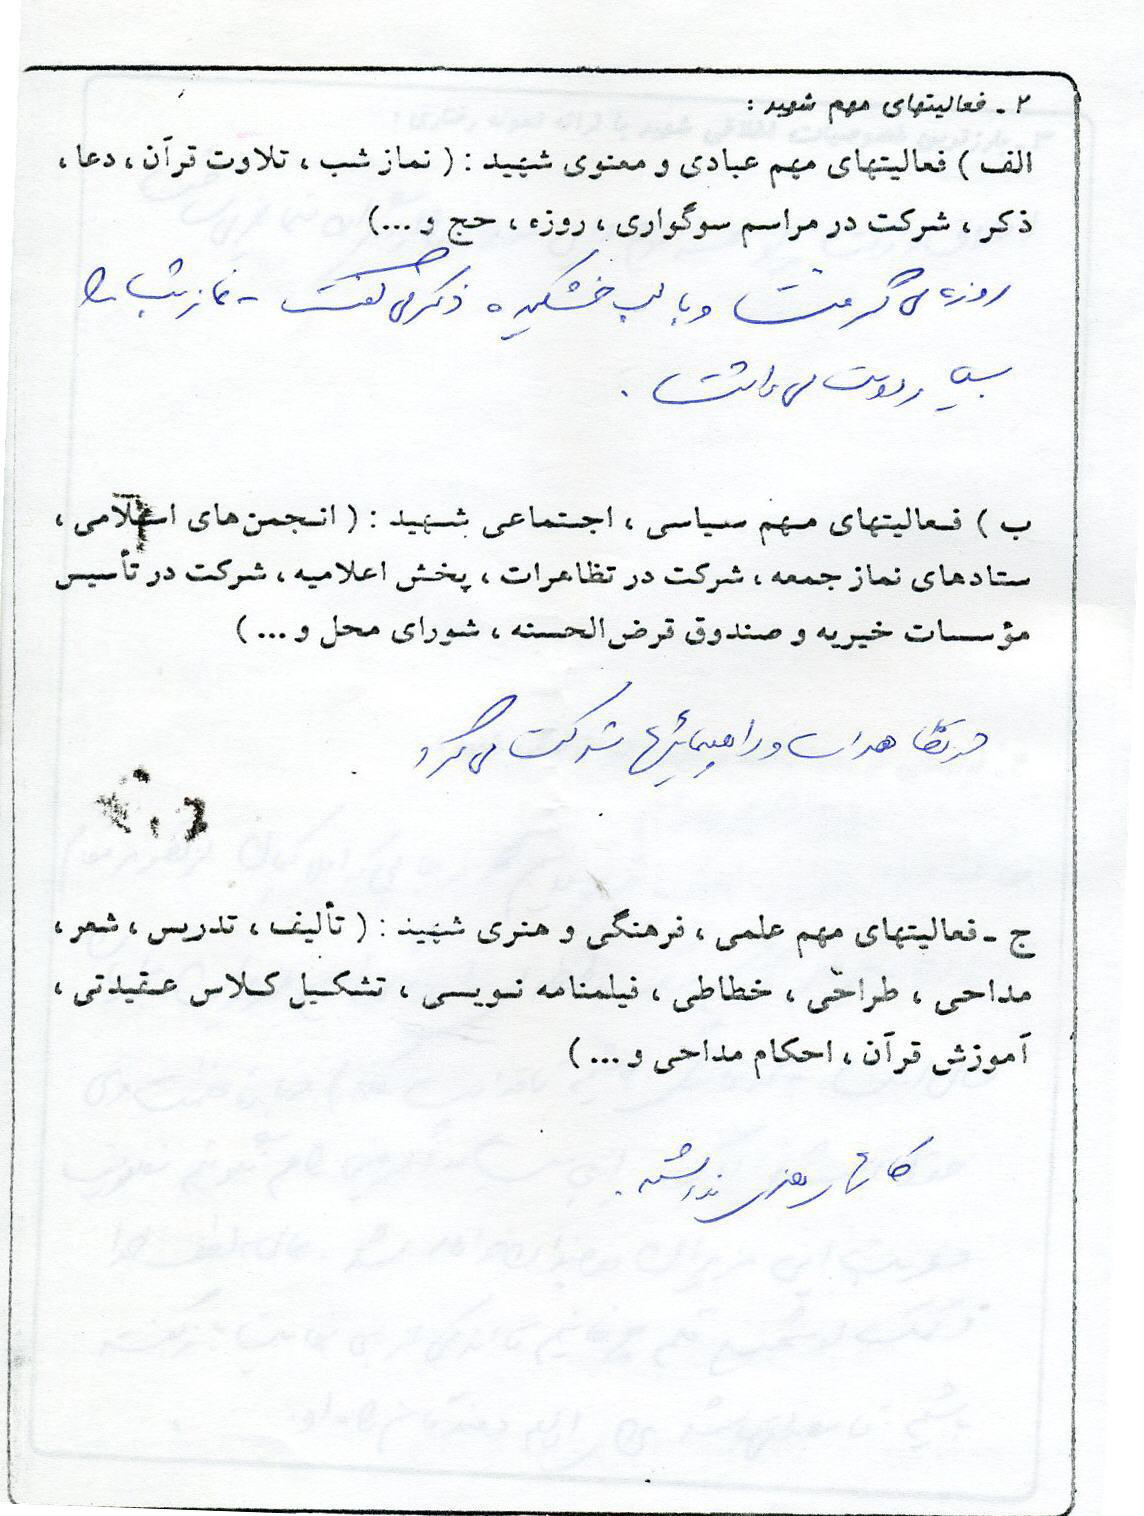 ۲ ـ فعالیتهای مهم شهید :
الف ) فعالیتهای مهم عبادی و معنوی شهید : ( نماز شب ، تلاوت قرآن ، دعا ،
ذکر ، شرکت در مراسم سوگواری ، روزه ، حج و ...)
روزه می گرفت و با لب خشکیده ذکر می گفت - نماز شب را
بسیار دوست می داشت .
ب ) فعالیتهای مهم سیاسی ، اجتماعی شهید : ( انجمن‌های اسلامی ،
ستادهای نماز جمعه ، شرکت در تظاهرات ، پخش اعلامیه ، شرکت در تأسیس
مؤسسات خیریه و صندوق قرض‌الحسنه ، شورای محل و ... )
در تظاهرات و راهپیمائیها شرکت می کرد
ج ـ فعالیتهای مهم علمی ، فرهنگی و هنری شهید : ( تألیف ، تدریس ، شعر ،
مداحی ، طراحی ، خطاطی ، فیلمنامه نویسی ، تشکیل کلاس عقیدتی ،
آموزش قرآن ، احکام مداحی و ... )
کارهای هنری نداشته .